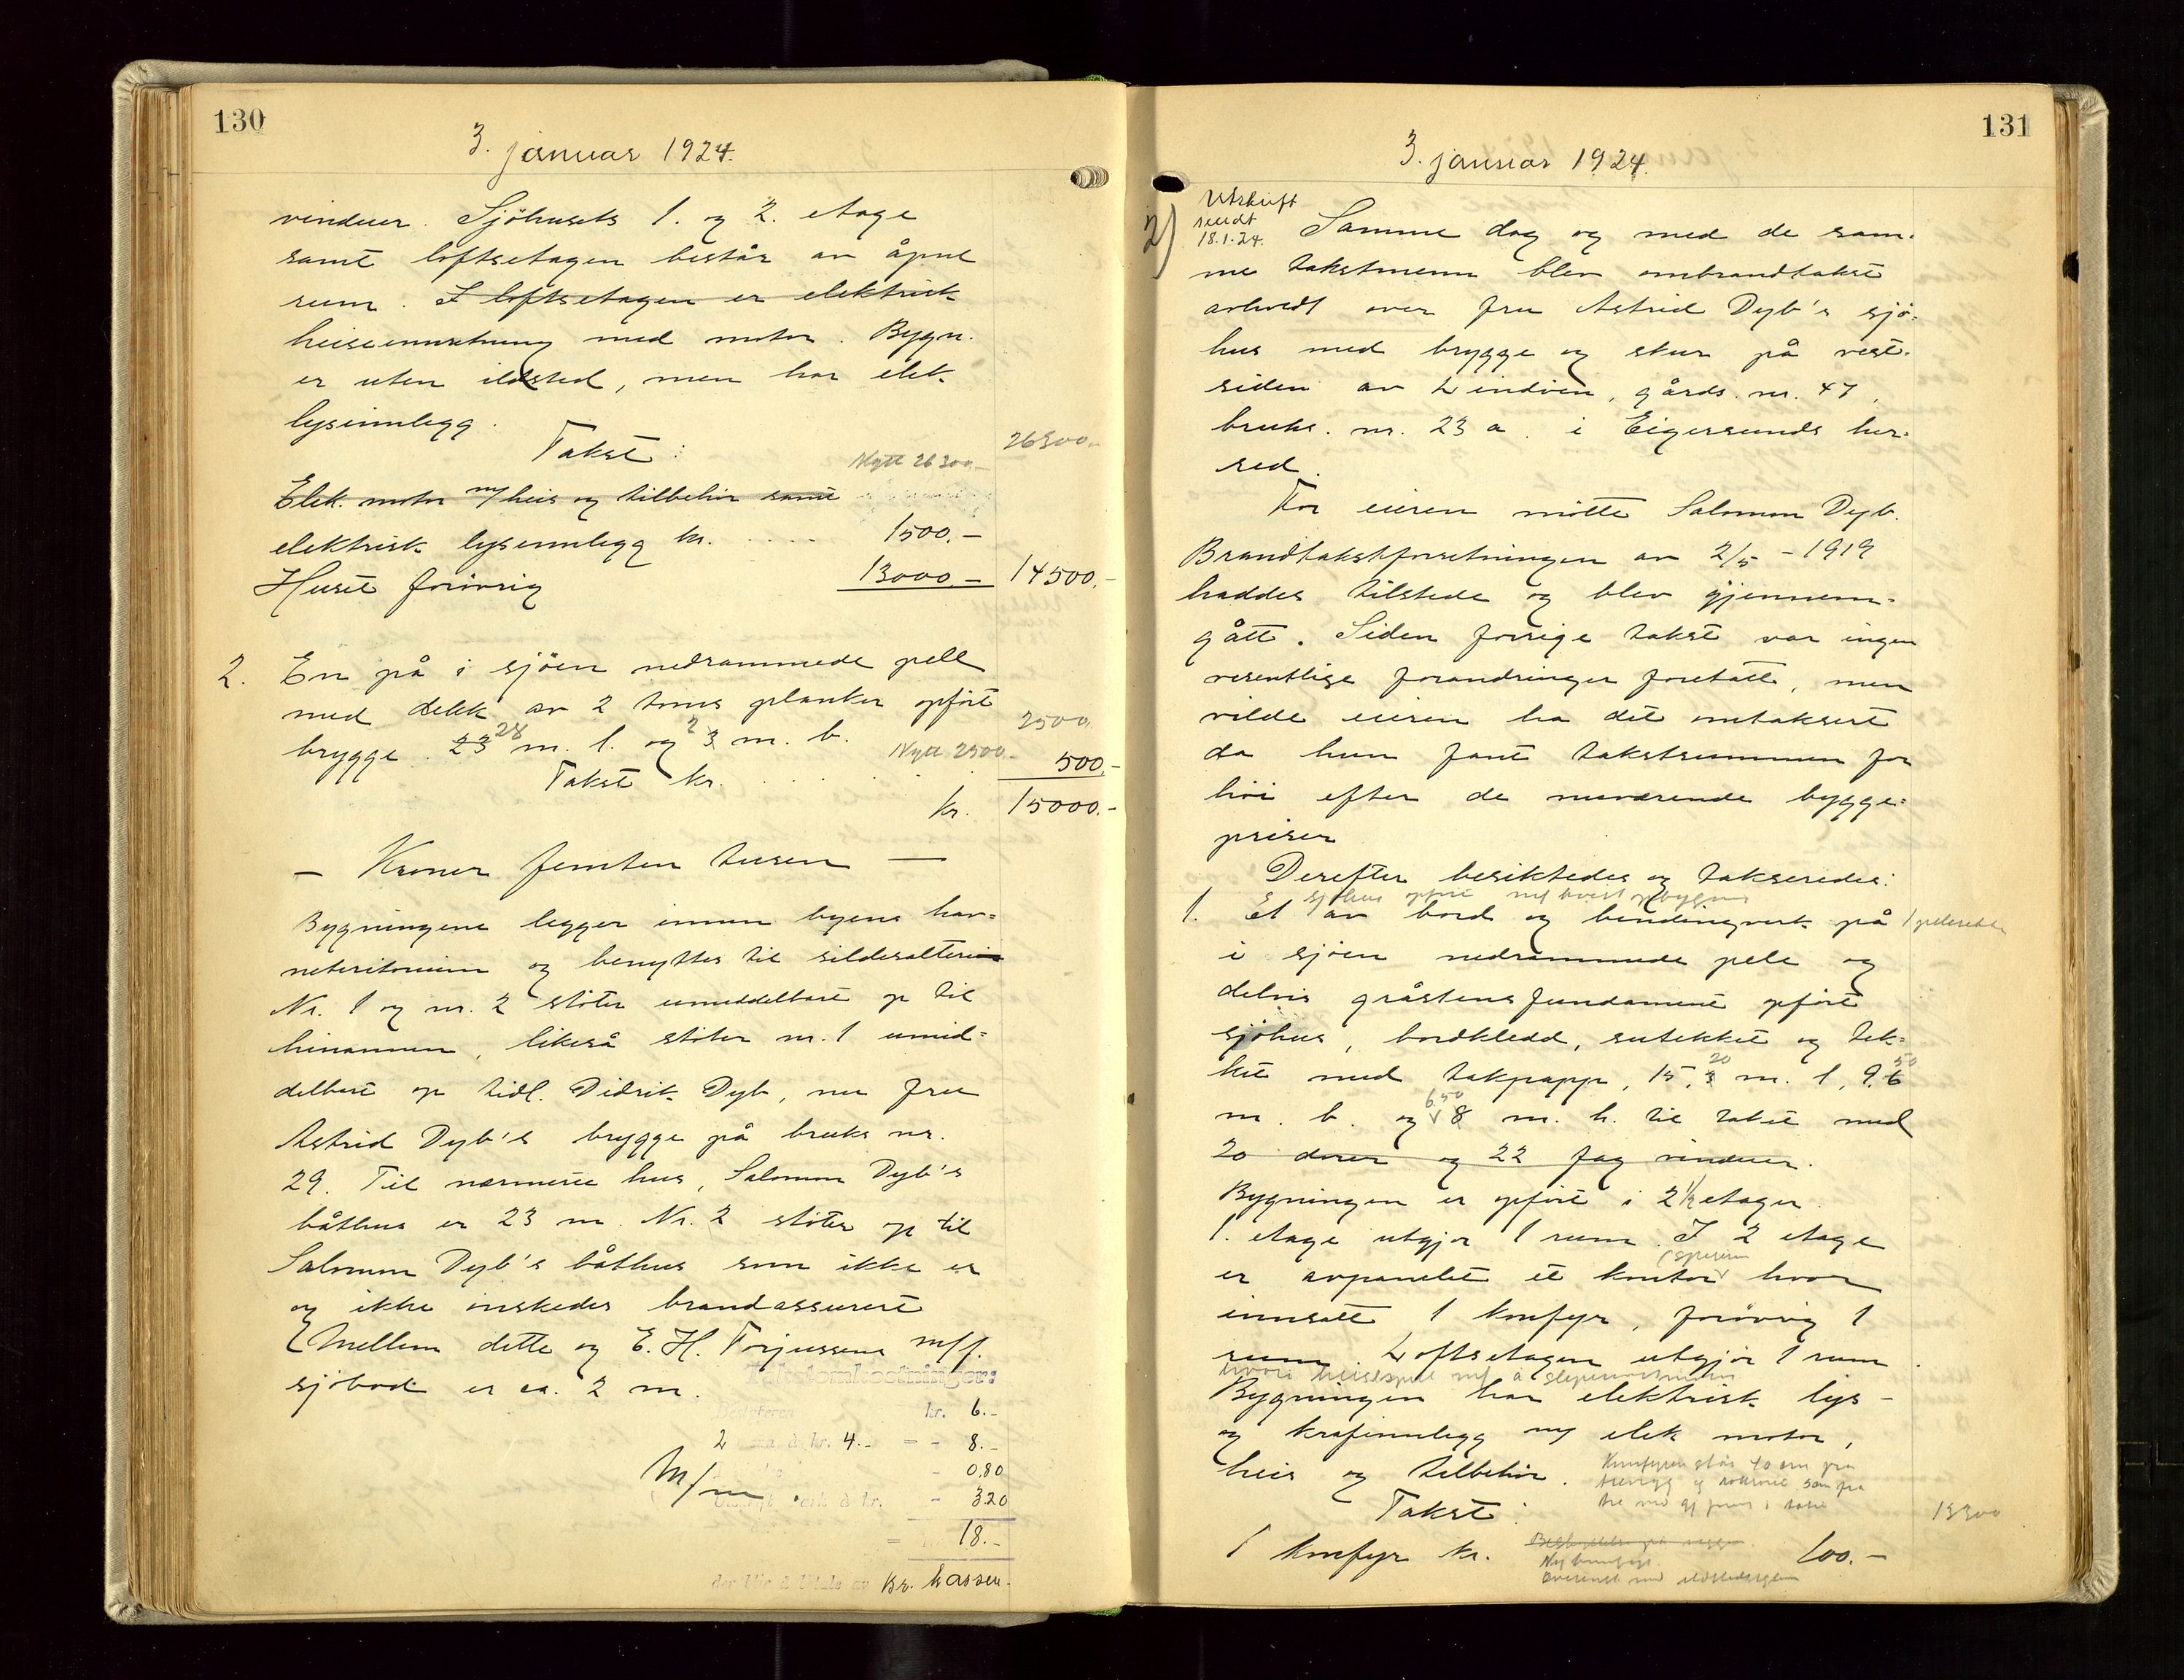 130
3. januar 1924.
vinduer. Sjöhusets 1. og 2. etage
samt loftsetagen består av åpne
rum. I loftsetagen er elektrisk
heiseinnretning med motor. Bygn.
er uten ildsted, men har elek.
lysinnlegg.
Takst:
26300.-
Nytt 26300.-
Elek. motor m/heis og tilbehör samt
elektrisk lysinnlegg kr. .... 1500.-
Huset forövrig 13000.- 14500.-
2. En på i sjöen nedrammede pell
med dekk av 2 toms planker opfört
brygge. 23 28 m. l. og 2 3 m. b.
2500.
Nytt 2500.-
Takst kr. .... 500.-
kr. 15000.-
— Kroner femten tusen —
Bygningene legger innen byens hav=
neteritorium og benyttes til sildesalteri
Nr. 1 og nr. 2 stöter umiddelbart op til
hinannen, likeså stöter nr. 1 umid=
delbart op tidl. Didrik Dyb, nu fru
Astrid Dyb's brygge på bruks nr.
29. Til nærmeste hus, Salomon Dyb's
båthus er 23 m. Nr. 2 stöter op til
Salomon Dyb's båthus som ikke er
og ikke önskedes brandassurert
Mellem dette og E. H. Torjussens m/f.
sjöbod er ca. 2 m.
Takstomkostninger:
Bestyreren kr. 6.-
2 à kr. 4.- = - 8.-
- 0.80
à kr. - 3.20
= 18.-
der blir å betale av Kr. kassen.
131
3. januar 1924.
2)
Utskrift
sendt
18.1.24.
Samme dag og med de sam-
me takstmenn blev ombrandtakst
avholdt over fru Astrid Dyb's sjö-
hus med brygge og skur på vest-
siden av Lindöen, gårds. nr. 47,
bruks. nr. 23 a. i Eigersunds her-
red.
For eieren mötte Salomon Dyb.
Brandtakstforretningen av 2/5 - 1919
haddes tilstede og blev gjennem-
gått. Siden forrige takst var ingen
vesentlige forandringer foretatt, men
vilde eieren ha det omtaksert
da hun fant takstsummen for
höi efter de nuværende bygge-
priser
Derefter besiktedes og takseredes:
sjöhus opfört
1. Et av bord og bindingverk på
i sjöen nedrammede pele og
delvis gråstensfundament opfört
sjöhus, bordkledd, sutekket og tek-
20 50
ket med takpapp, 15,3 m. l, 9,6
6.50
m. b. og 8 m. h. til taket med
20 dorer og 22 fag vinduer.
Bygningen er opfört i 2 1/2 etager
1. etage utgjör 1 rum. I 2 etage
er avpanelet et kontor hvor
innsatt 1 komfyr, forövrig 1
rum. Loftsetagen utgjör 1 rum.
Bygningen har elektrisk lys-
og kraftinnlegg m/ elek motor,
heis og tilbehör.
Komfyren står 40 cm fra
Takst:
1 komfyr kr. 100.-